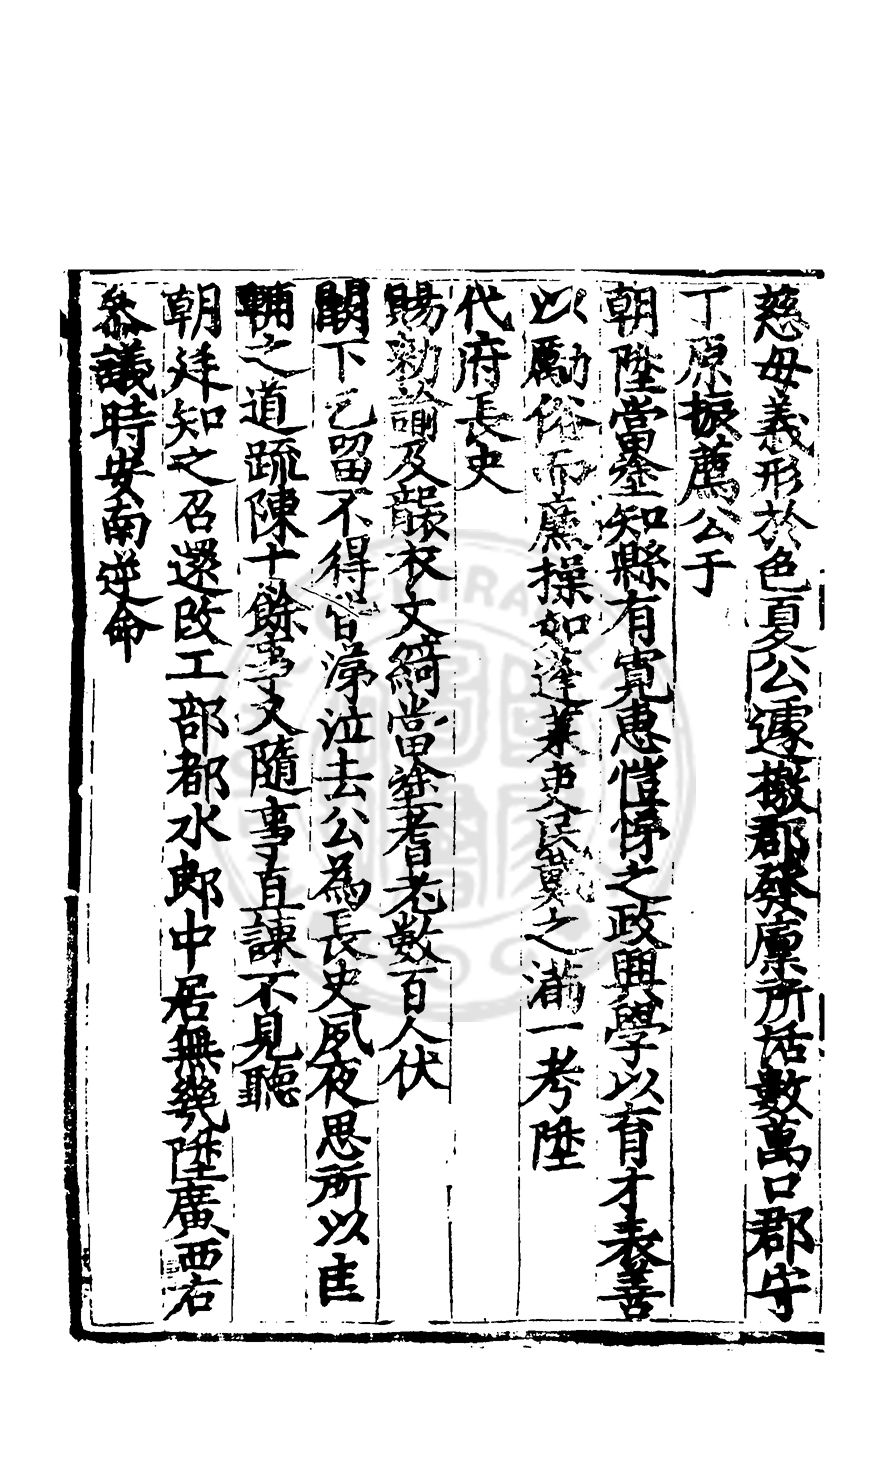 慈母義形於色夏公遽檄郡發廪所活數萬口郡守
丁原振薦公于
朝陞當塗知縣有寛惠愷悌之政興學以育才表善
以勵俗而廉操如蓬萊吏民戴之滿一考陞
代府長史
賜勑諭及襲衣文綺當塗耆老數百人伏
闕下乞留不得皆涕泣去公為長史夙夜思所以匡
輔之道疏陳十餘事又隨事直諫不見聽
朝廷知之召還改工部都水郎中居無幾陞廣西右
叅議時安南逆命